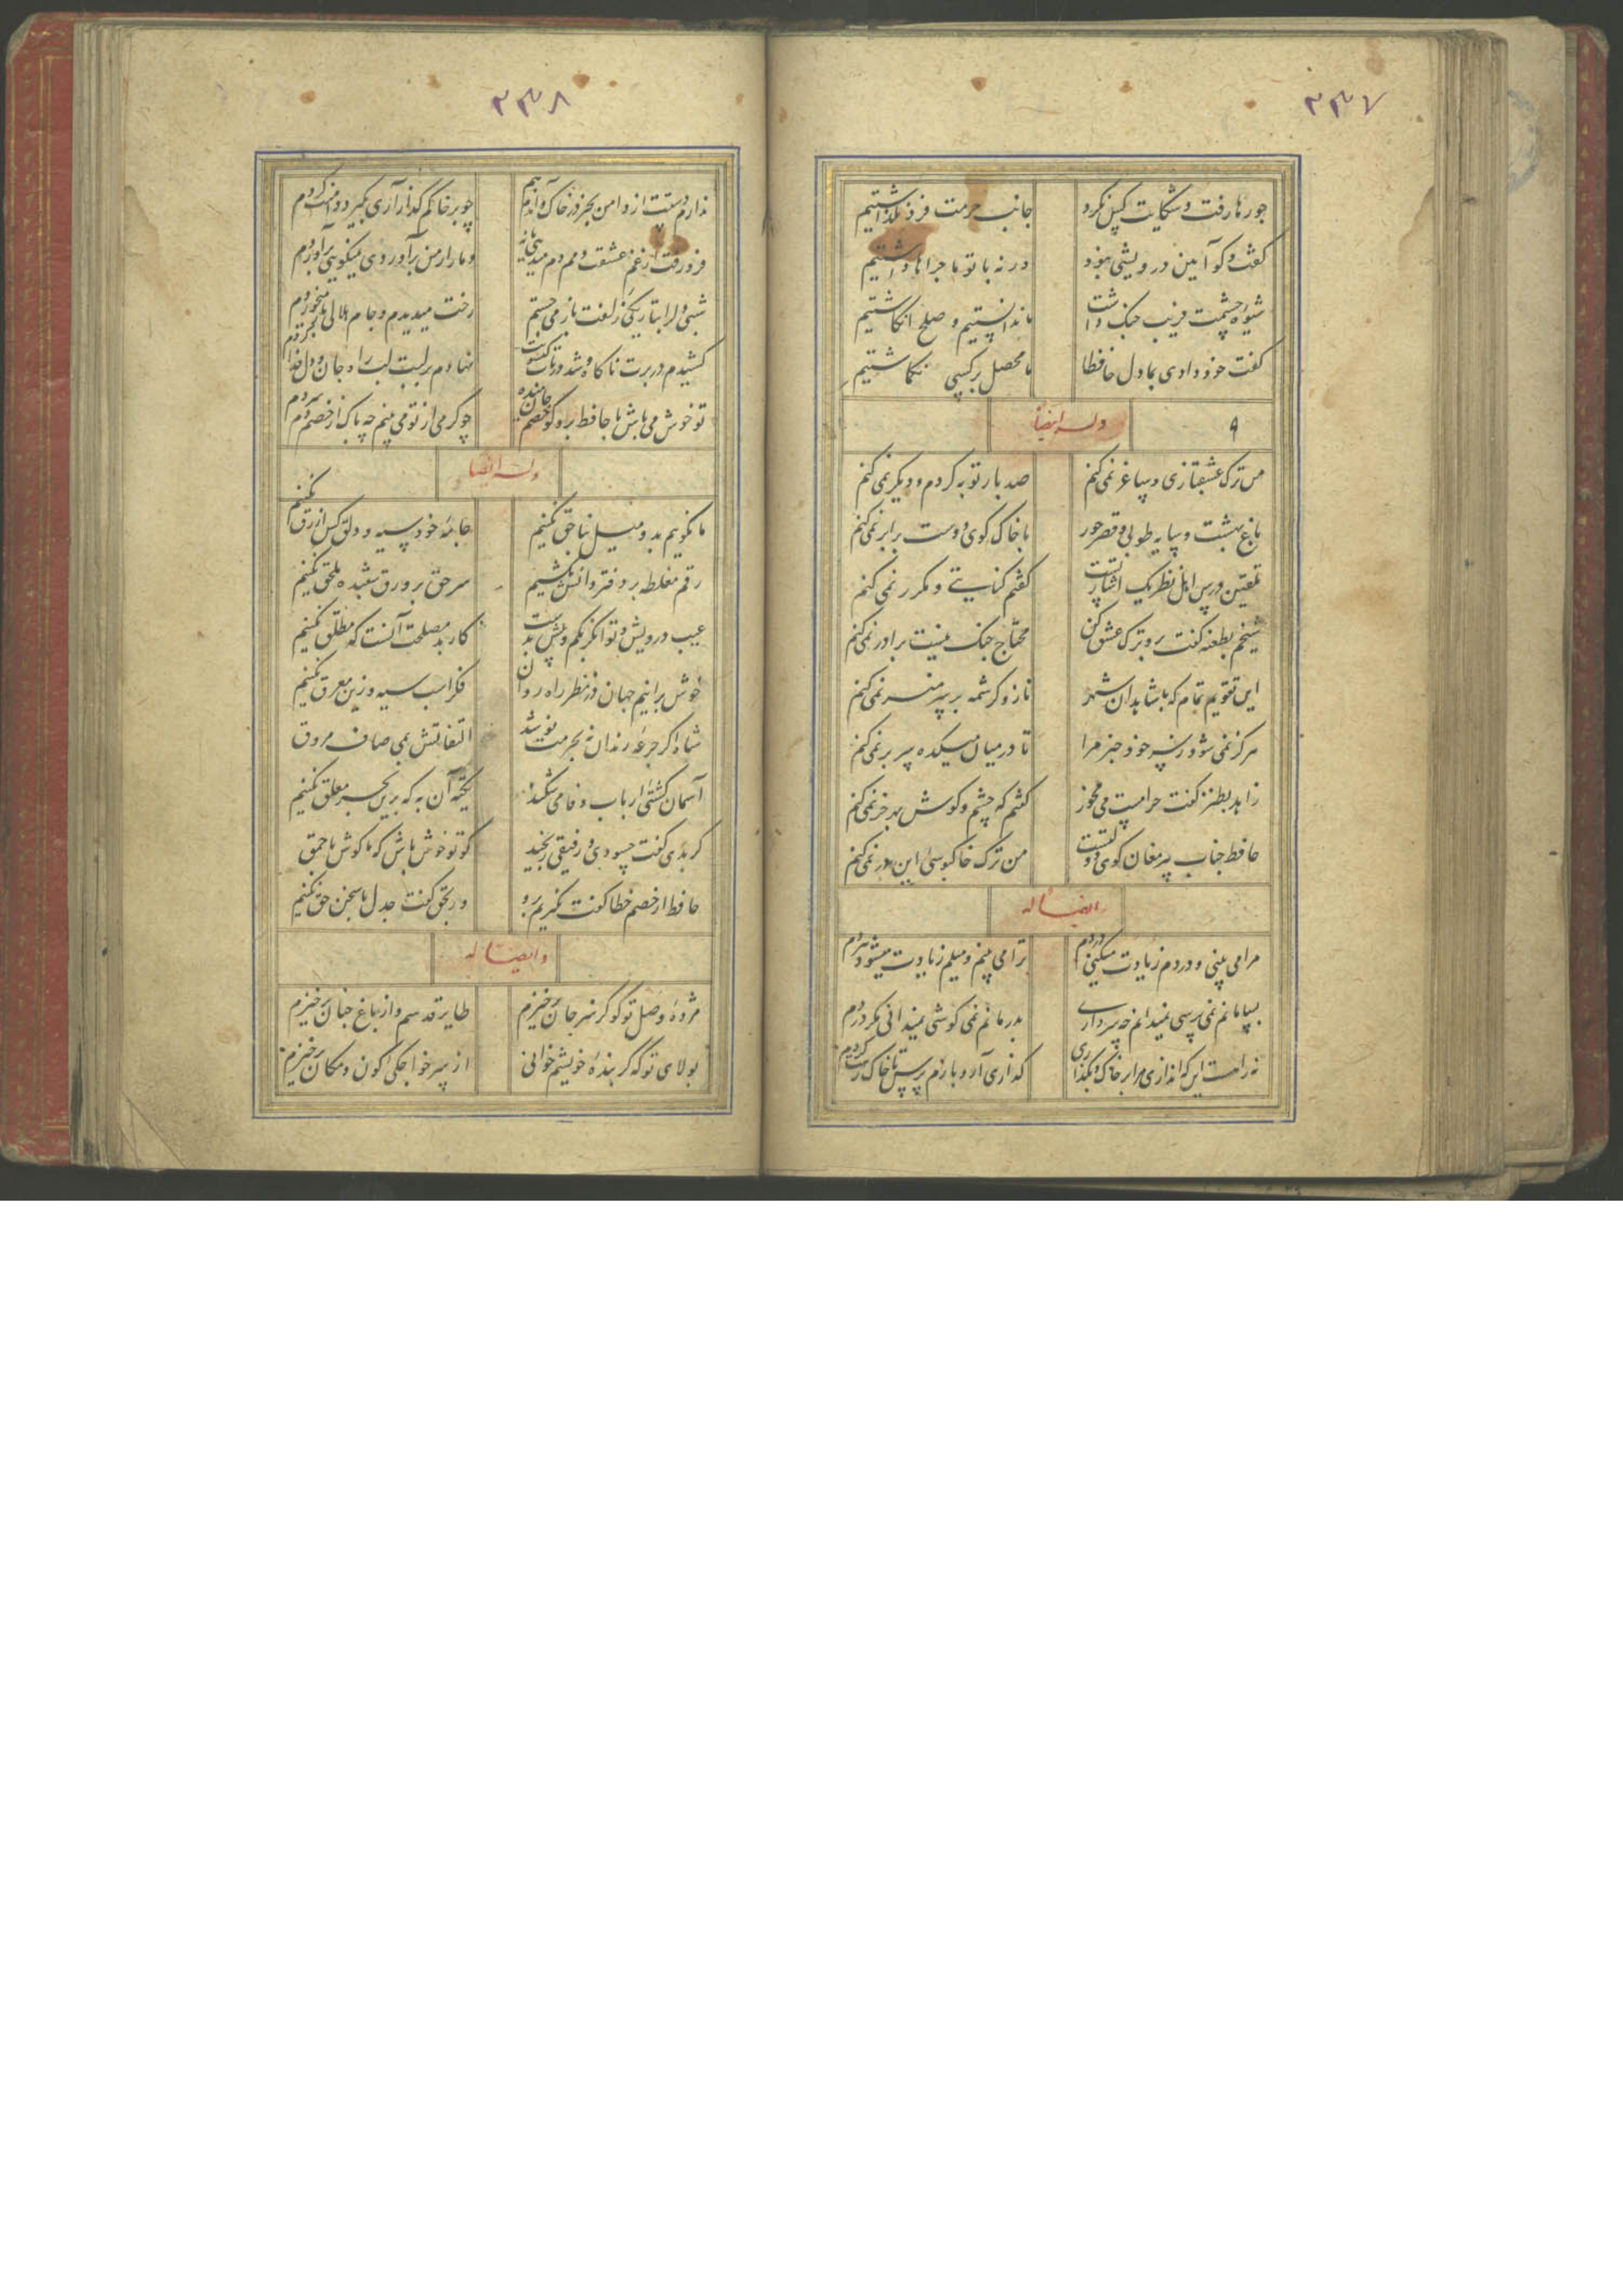 ۲۳۷
جورها رفت و شکایت کس نکرد جانب حرمت فرو نگذاشتیم
گفت و گو آیین درویشی نبود ورنه با تو ماجراها داشتیم
شیوه چشمت فریب جنک داشت ما ندانستیم و صلح انکاشتیم
گفت خود دادی بما دل حافظا ما محصل بر کسی نکماشتیم
۹ وله ایضا
من ترک عشقبازی و ساغر نمی کنم صد بار توبه کردم و دیکر نمی کنم
باغ بهشت و سایه طوبی و قصر حور با خاک کوی دوست برابر نمی کنم
تلقین درس اهل نظر یک اشارتست گفتم کنایتی و مکرر نمی کنم
شیخم بطعنه گفت برو ترک عشق کن محتاج جنک نیست برادر نمی کنم
این تقویم تمام که با شاهدان شهر ناز و کرشمه بر سر منبر نمی کنم
هرکز نمی شود ز سر خود خبر مرا تا در میان میکده سر بر نمی کنم
زاهد بطنز گفت حرامست می مخور گفتم که چشم و کوش بهر خر نمی کنم
حافظ جناب پیر مغان کوی دولتست من ترک خاکبوسی این در نمی کنم
ایضا له
مرا می بینی و دردم زیادت میکنی دردم ترا می بینم و میلم زیادت میشود هر دم
بسامانم نمی پرسی نمیدانم چه سر داری بدرمانم نمی کوشی نمیدانی مکر دردم
نه راهست این که اندازی مرا بر خاک و بگذاری گذاری آر و بازم پرس تا خاک رهت گردم
۲۳۸
ندارم دستت از دامن بجز در خاک و اندم هم چو بر خاکم گذار آری بگیرد دامنت گردم
فرو رفت از غم عشقت دمم دم میدهی تا کی دمار از من برآوردی نمیکویی برآوردم
شبی دل را بتاریکی ز زلفت باز می جستم رخت میدیدم و جام هلالی باز میخوردم
کشیدم در برت ناکاه و شد در تاب گیسویت نهادم بر لبت لب را و جان و دل فدا کردم
تو خوش می باش با حافظ برو کو خصم جان میده چو کرمی از تو می بینم چه باک از خصم دم سردم
وله ایضا
ما نکوییم بد و میل بناحق نکنیم جامه خود سیه و دلق کس ازرق نکنیم
رقم مغلطه بر دفتر دانش نکشیم سر حق بر ورق شعبده ملحق نکنیم
عیب درویش و توانکر بکم و بیش بدست کار بد مصلحت آنست که مطلق نکنیم
خوش برانیم جهان در نظر راه روان فکر اسب سیه و زین مغرق نکنیم
شاه اکر جرعه رندان نه بحرمت نوشد التفاتش بمی صاف مروق
آسمان کشتی ارباب وفا می شکند تکیه آن به که برین بحر معلق نکنیم
کر بدی گفت حسودی و رفیقی رنجید کو تو خوش باش که ما کوش باحمق
حافظ ار خصم خطا گفت نگیریم برو ور بحق گفت جدل با سخن حق نکنیم
و ایضا له
مژده وصل تو کو کز سر جان برخیزم طایر قدسم و از باغ جنان برخیزم
بولای تو که گر بنده خویشم خوانی از سر خواجکی کون و مکان برخیزم